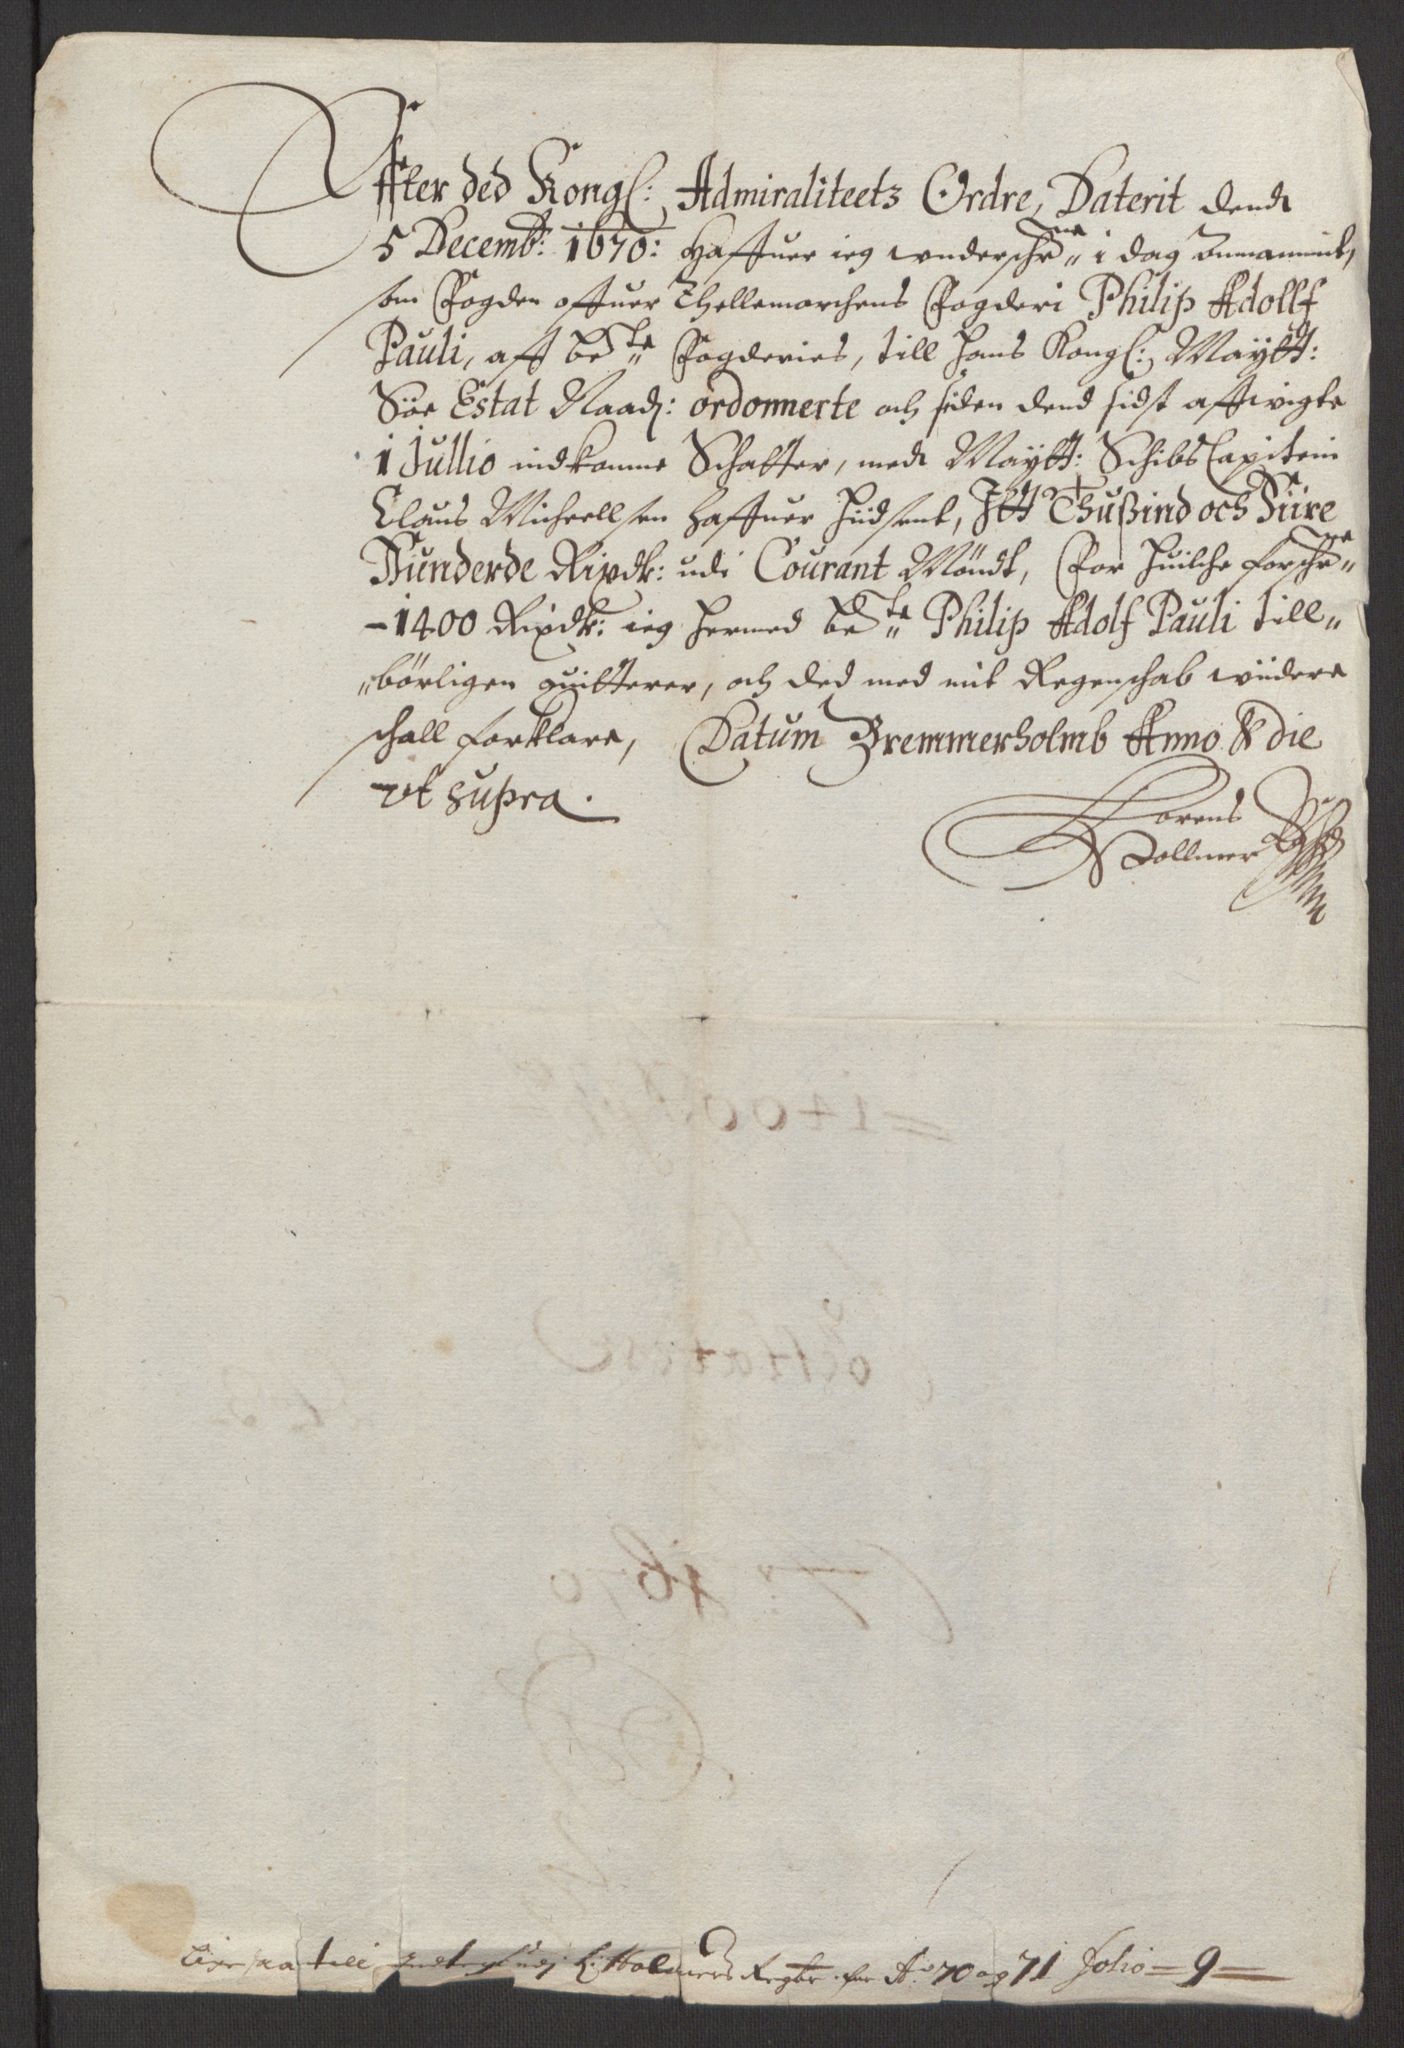 Effter ded Kongl: Admiraliteets Ordre, Daterit dend
5 Decemb: 1670: Haffuer ieg underschr: ne i dag annammit,
som Fogden offuer Thellemarchens Fogderi Philip Adollf
Pauli, aff be: te Fogderies, till Hans Kongl: Maytt:
Söe Estat Naad: ordonnerte och siden dend sidst affvigte
1 Jullio indkomne Schatter, med Maytt: Schibs Capitein
Claus Micheellsen haffuer hiidsent, Itt Thußind och Fiire
Hunderde Rixdr: udi Courant Möndt, For huilche forschr: ne
- 1400 Rixdr: ieg hermed be: te Philip Adolf Pauli till"
"börligen quitterer, och ded med mit Regenschab viidere
schall forklare, Datum Bremmerholmb Anno & die
ut supra.
Lorens
Vollmer
till Vollmers Regbr for Ao 70 og 71 Folio = 9 =